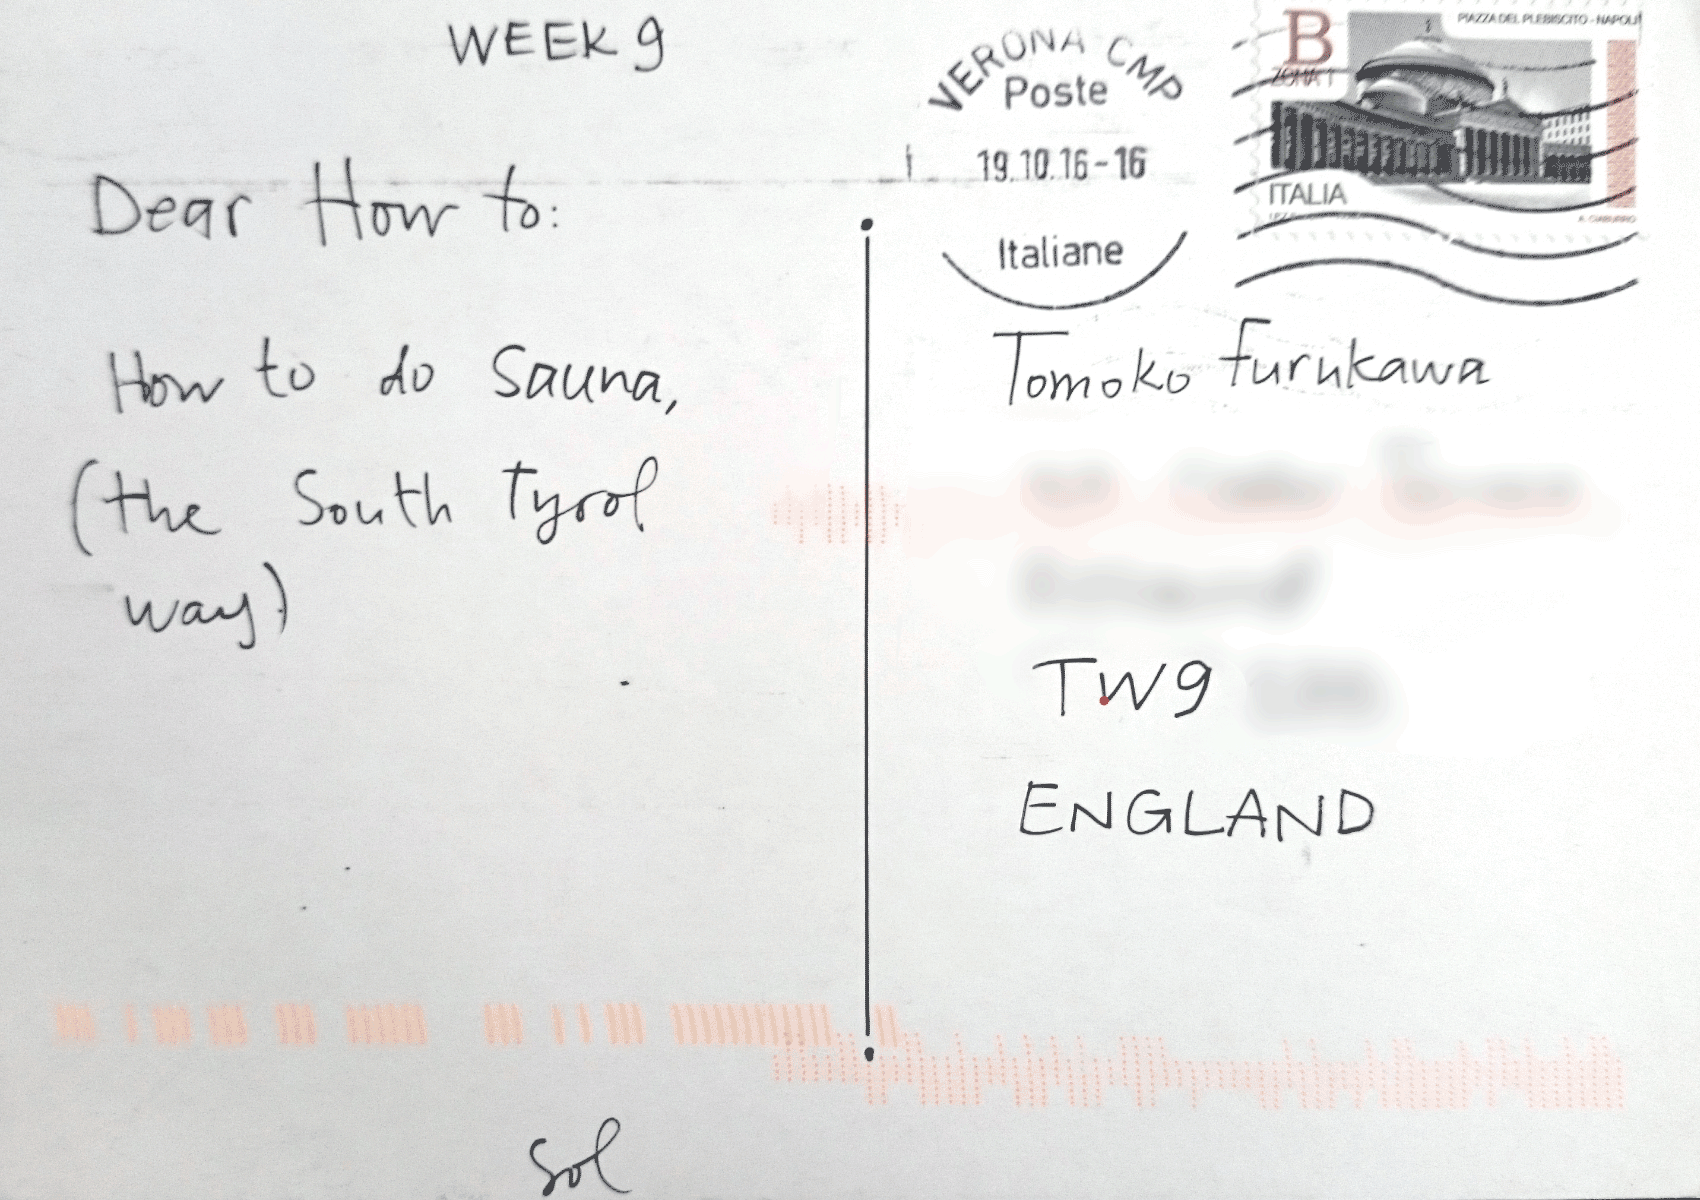 WEEK 9
Dear How to:
How to do Sauna,
(the South Tyrol
way)
Sol
VERONA CMP
Poste
19.10.16-16
Italiane
PIAZZA DEL PLEBISCITO - NAPOLI
B
ZONA 1
ITALIA
Tomoko Furukawa
TW9
ENGLAND